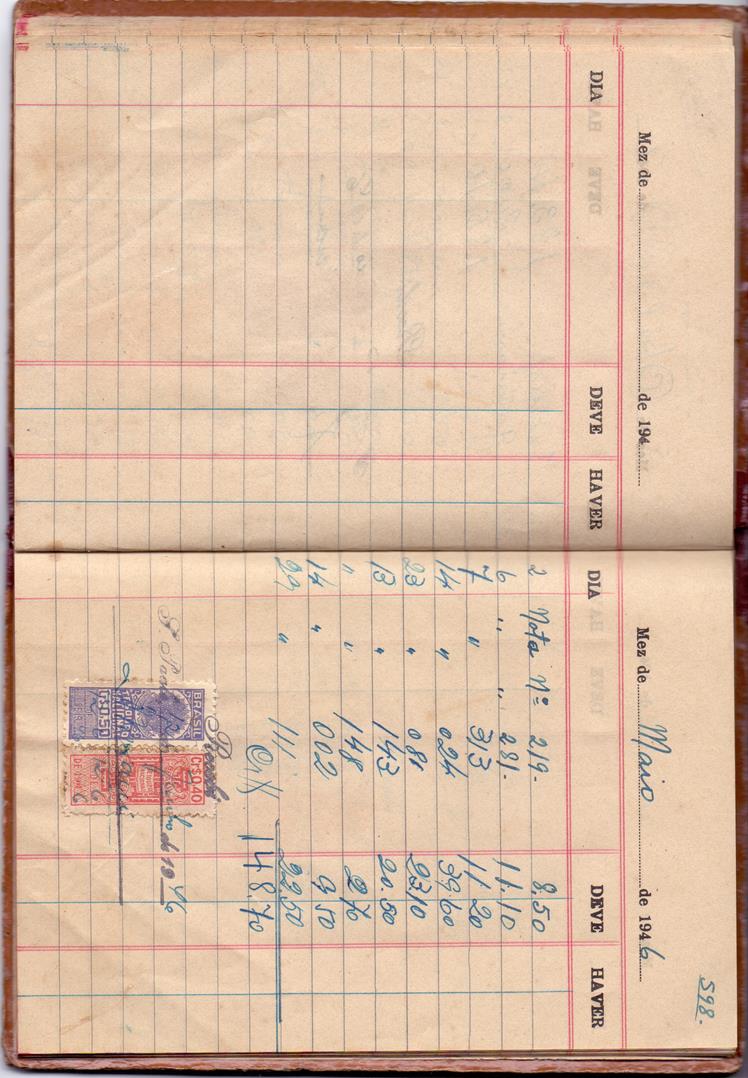 Mez de de 194
DIA DEVE HAVER
598.
Mez de Maio de 1946
DIA DEVE HAVER
2 Nota Nº 219- 8.50
6 " " 281- 11.10
7 " 313 11.20
14 " 024 39.60
23 " 081 23.10
13 " 143 20.50
" " 148 2.70
14 " 002 9.50
29 " 111 22.50
Cr$ 148.70
S. Paulo de Junho de 1946
BRASIL
TESOURO NACIONAL
CR$0,50
CR$0,40